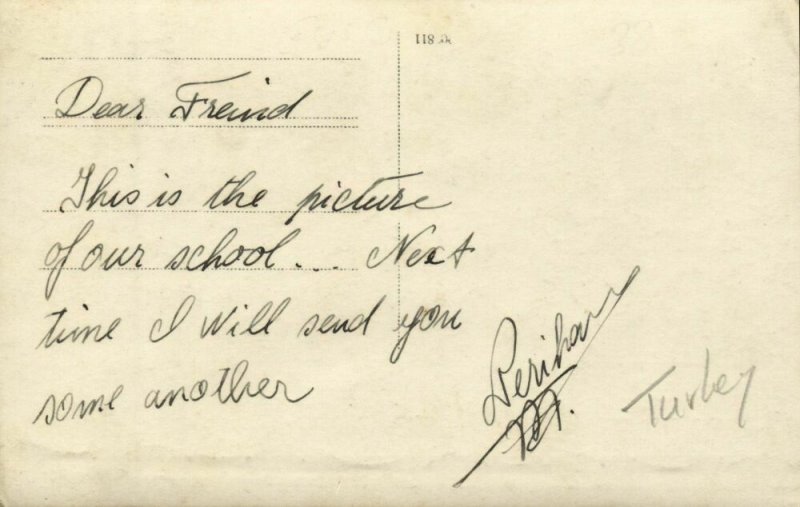 Dear Freind
This is the picture
of our school... Next
time I will send you
some another
Perihan
M.
Turkey